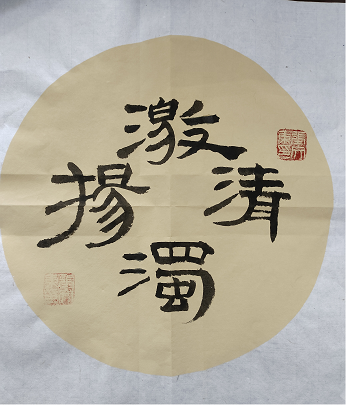 激濁揚清